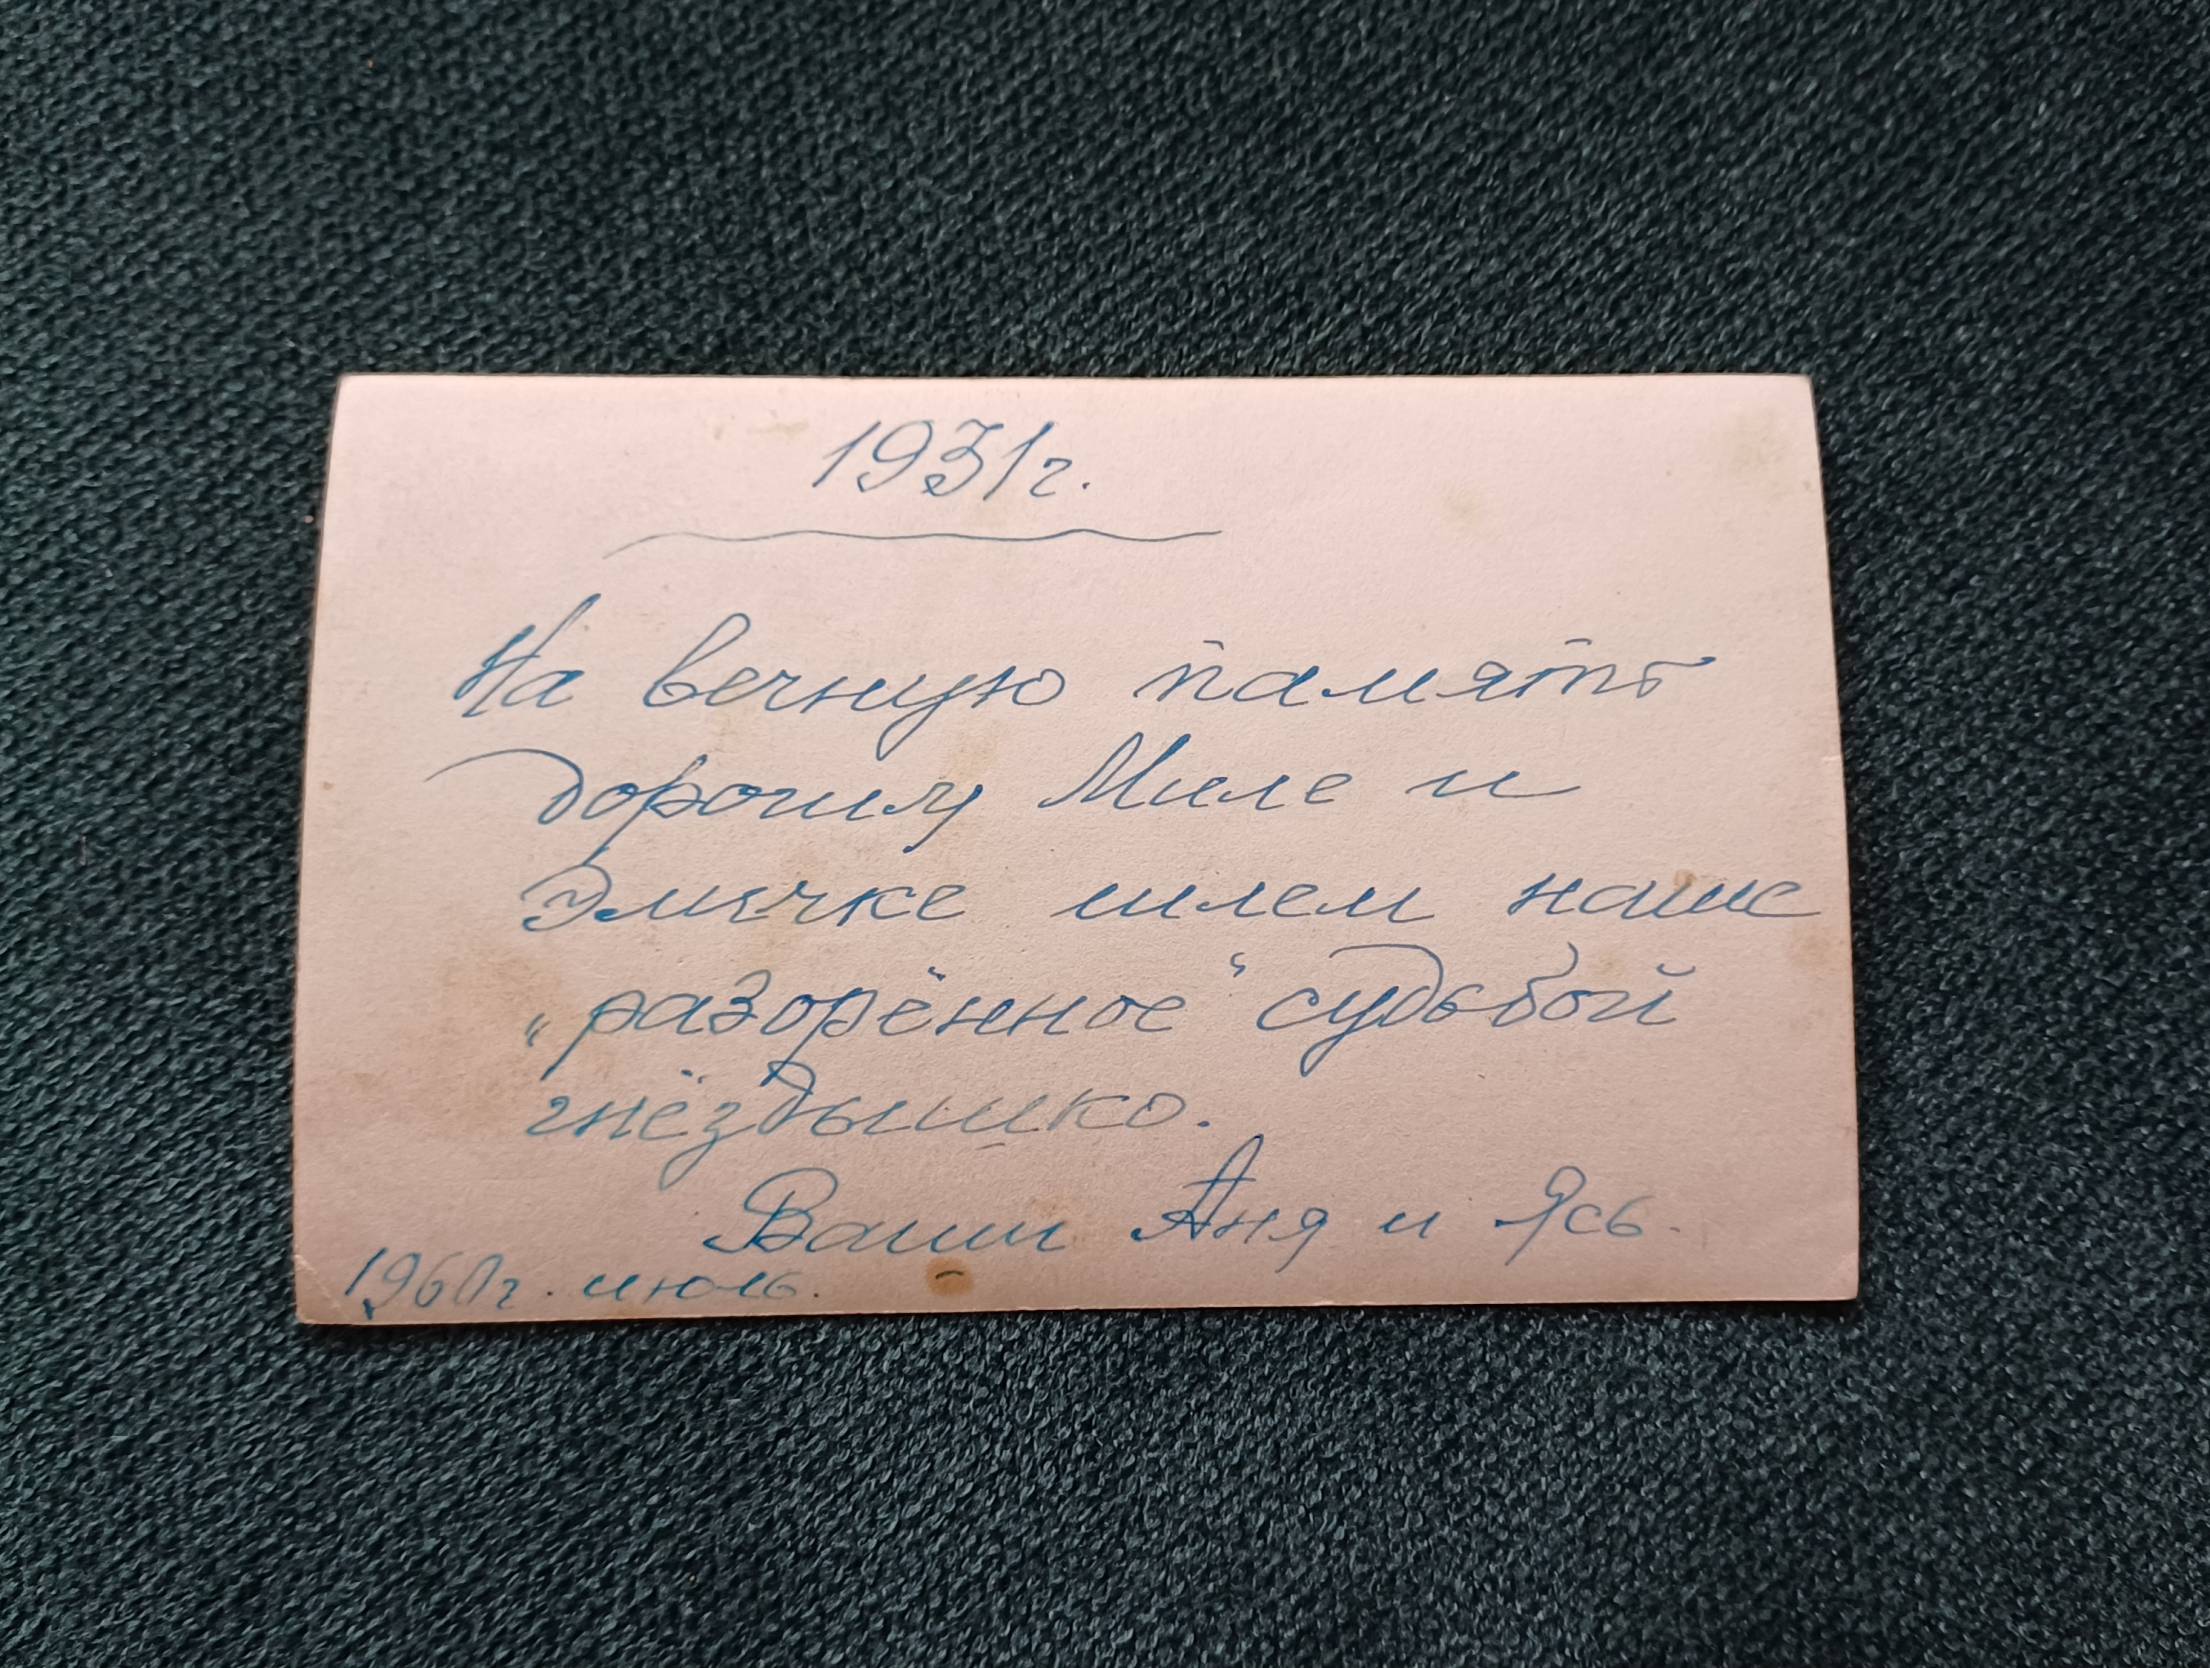 1931г.
На вечную память
дорогим Миле и
Эмочке шлем наше
„разорённое“ судьбой
гнёздышко.
Ваши Аня и Ясь.
1960г. июль.